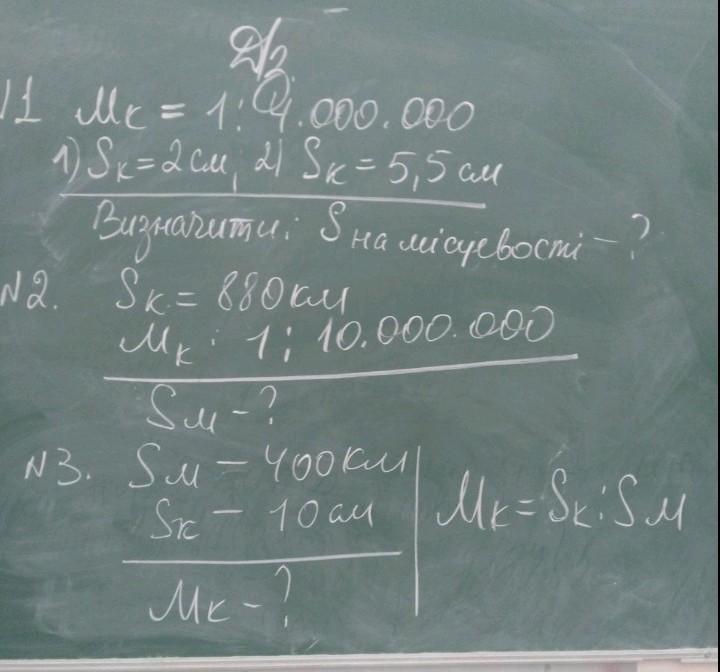 Д/з
№1 Мк = 1:4.000.000
1) Sк = 2 см; 2) Sк = 5,5 см
Визначити: S на місцевості – ?
№2. Sк = 880 км
Мк : 1 : 10.000.000
Sм - ?
№3. Sм – 400 км
Sк – 10 см
Мк = Sк : Sм
Мк - ?